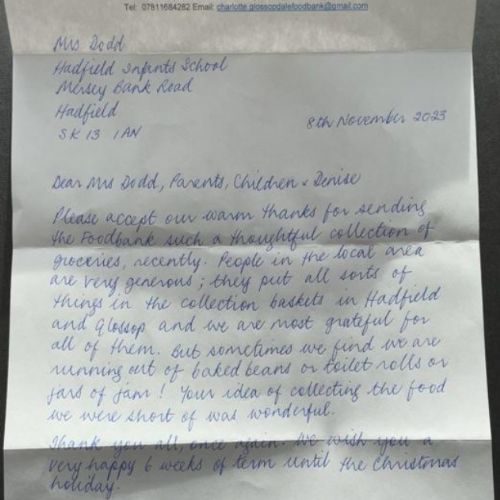 Tel: 07811684282 Email: charlotte.glossopdalefoodbank@gmail.com
Mrs Dodd
Hadfield Infants School
Mersey Bank Road
Hadfield
SK13 1AN
8th November 2023
Dear Mrs Dodd, Parents, Children & Denise
Please accept our warm thanks for sending
the Foodbank such a thoughtful collection of
groceries, recently. People in the local area
are very generous; they put all sorts of
things in the collection baskets in Hadfield
and Glossop and we are most grateful for
all of them. But sometimes we find we are
running out of baked beans or toilet rolls or
jars of jam! Your idea of collecting the food
we were short of was wonderful.
Thank you all, once again. We wish you a
very happy 6 weeks of term until the Christmas
holiday.